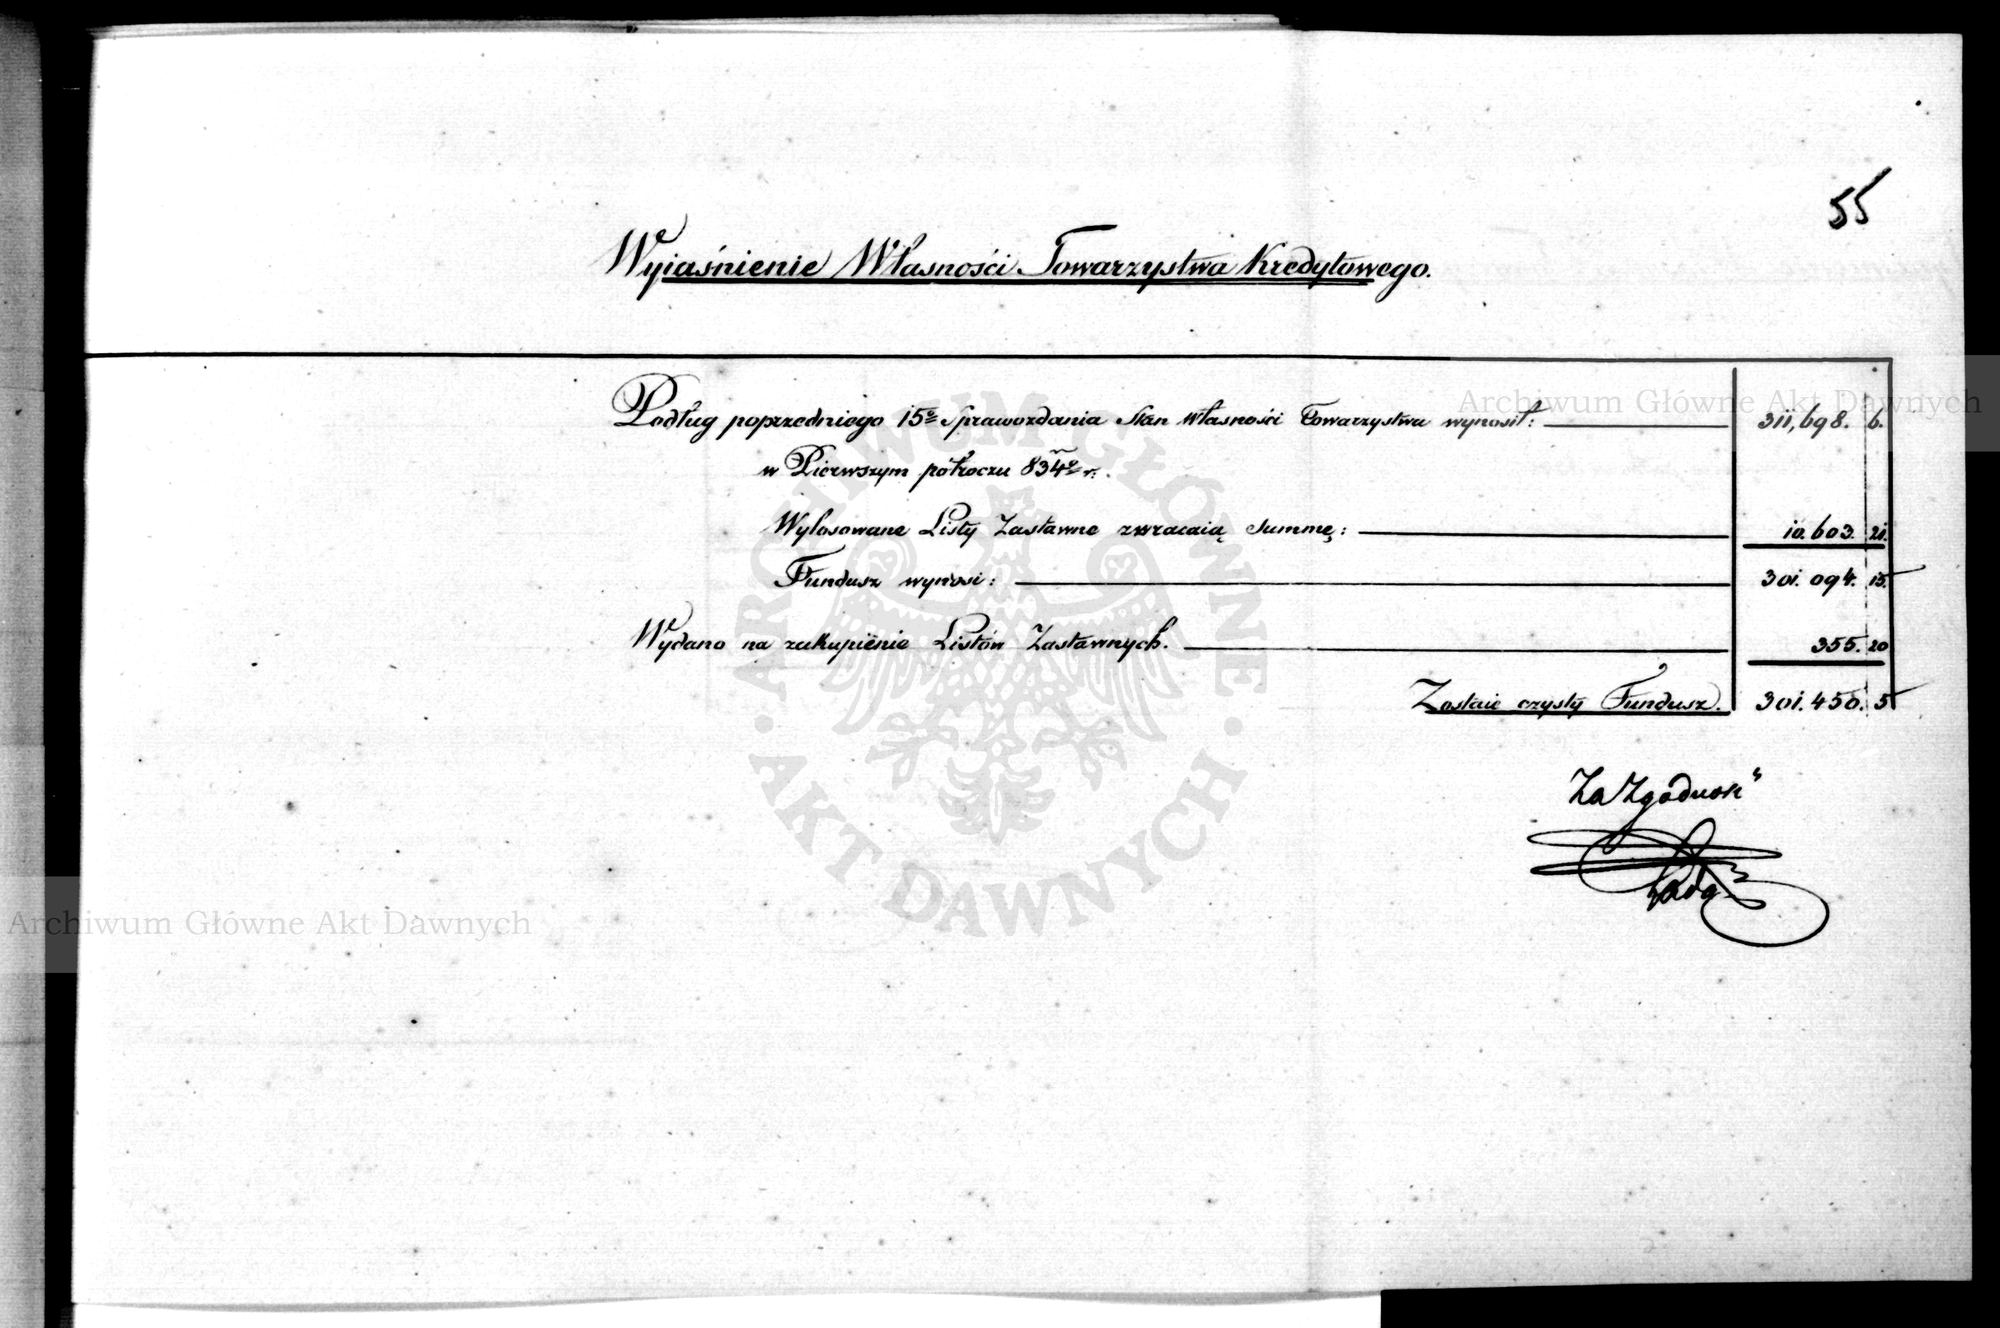 55
Wyiaśnienie Własności Towarzystwa Kredytowego.
Podług poprzedniego 15º Sprawozdania Stan Własności Towarzystwa wynosił: 311,698. 6.
w Pierwszym półroczu 834º r.
Wylosowane Listy Zastawne zwracaią Summę: 10.603. 21.
Fundusz wynosi: 301.094. 15.
Wydano na zakupienie Listów Zastawnych. 355. 20
Zostaie czysty Fundusz. 301.450. 5
Za Zgodność
Archiwum Główne Akt Dawnych
Archiwum Główne Akt Dawnych
ARCHIWUM GŁÓWNE · AKT DAWNYCH ·